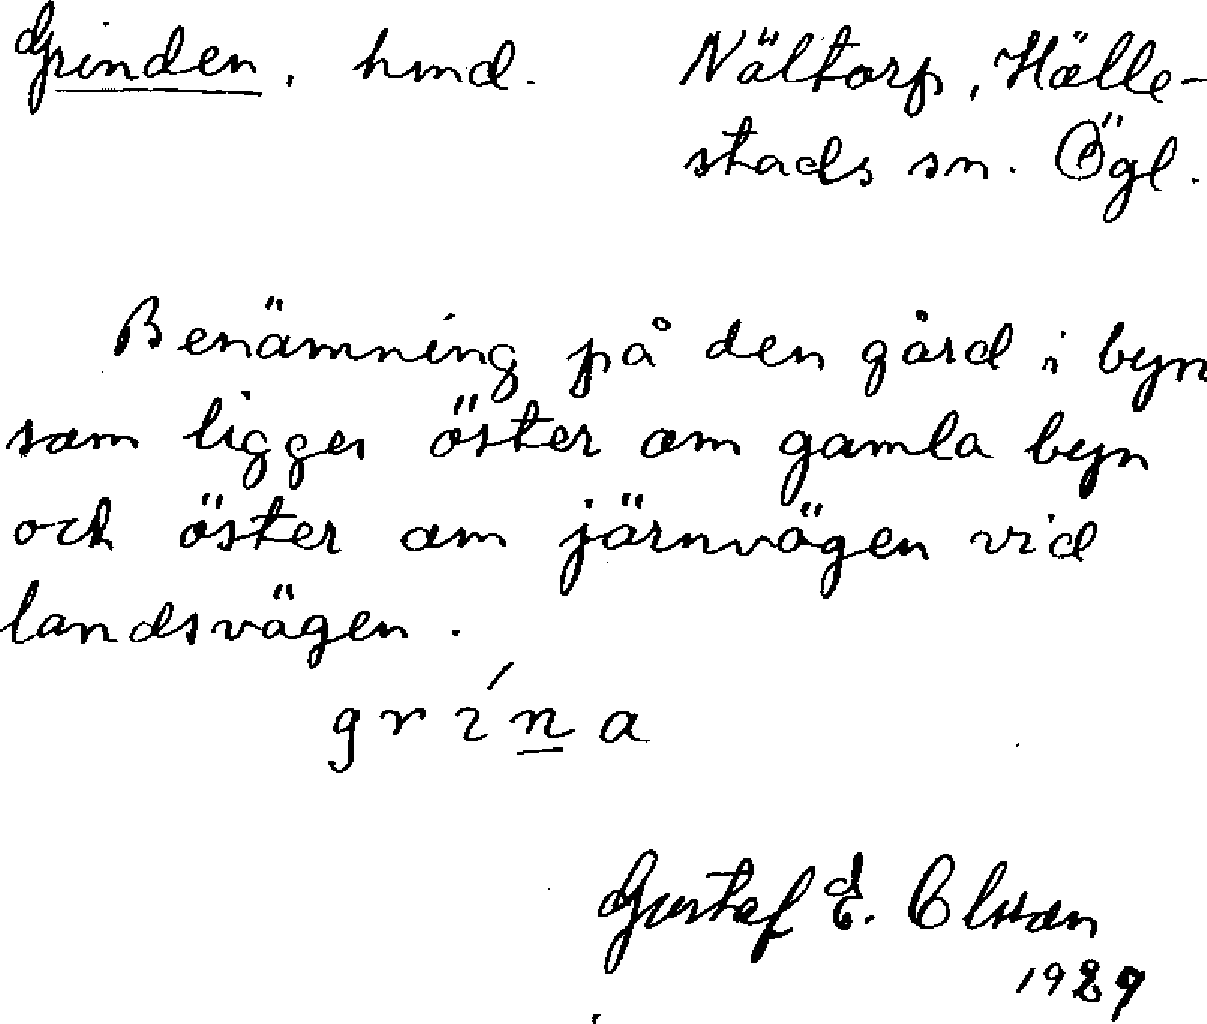 Grinden, hmd. Nältorp, Hälle-
stads sn. Ögl.
Benämning på den gård i byn
som ligger öster om gamla byn
och öster om järnvägen vid
landsvägen.
grína
Gustaf E. Olsson
1929